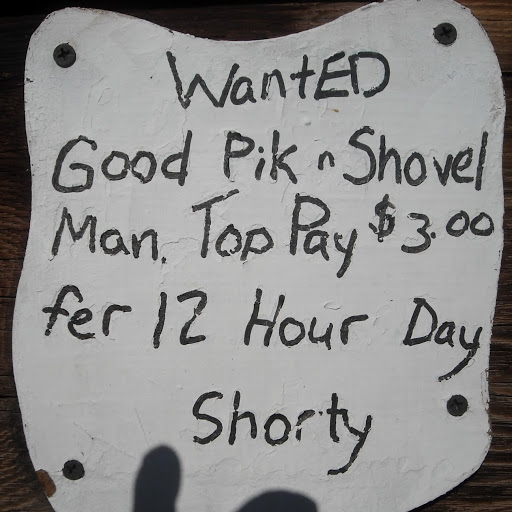 WantED
Good Pik n Shovel
Man. Top Pay $3.00
fer 12 Hour Day
Shorty